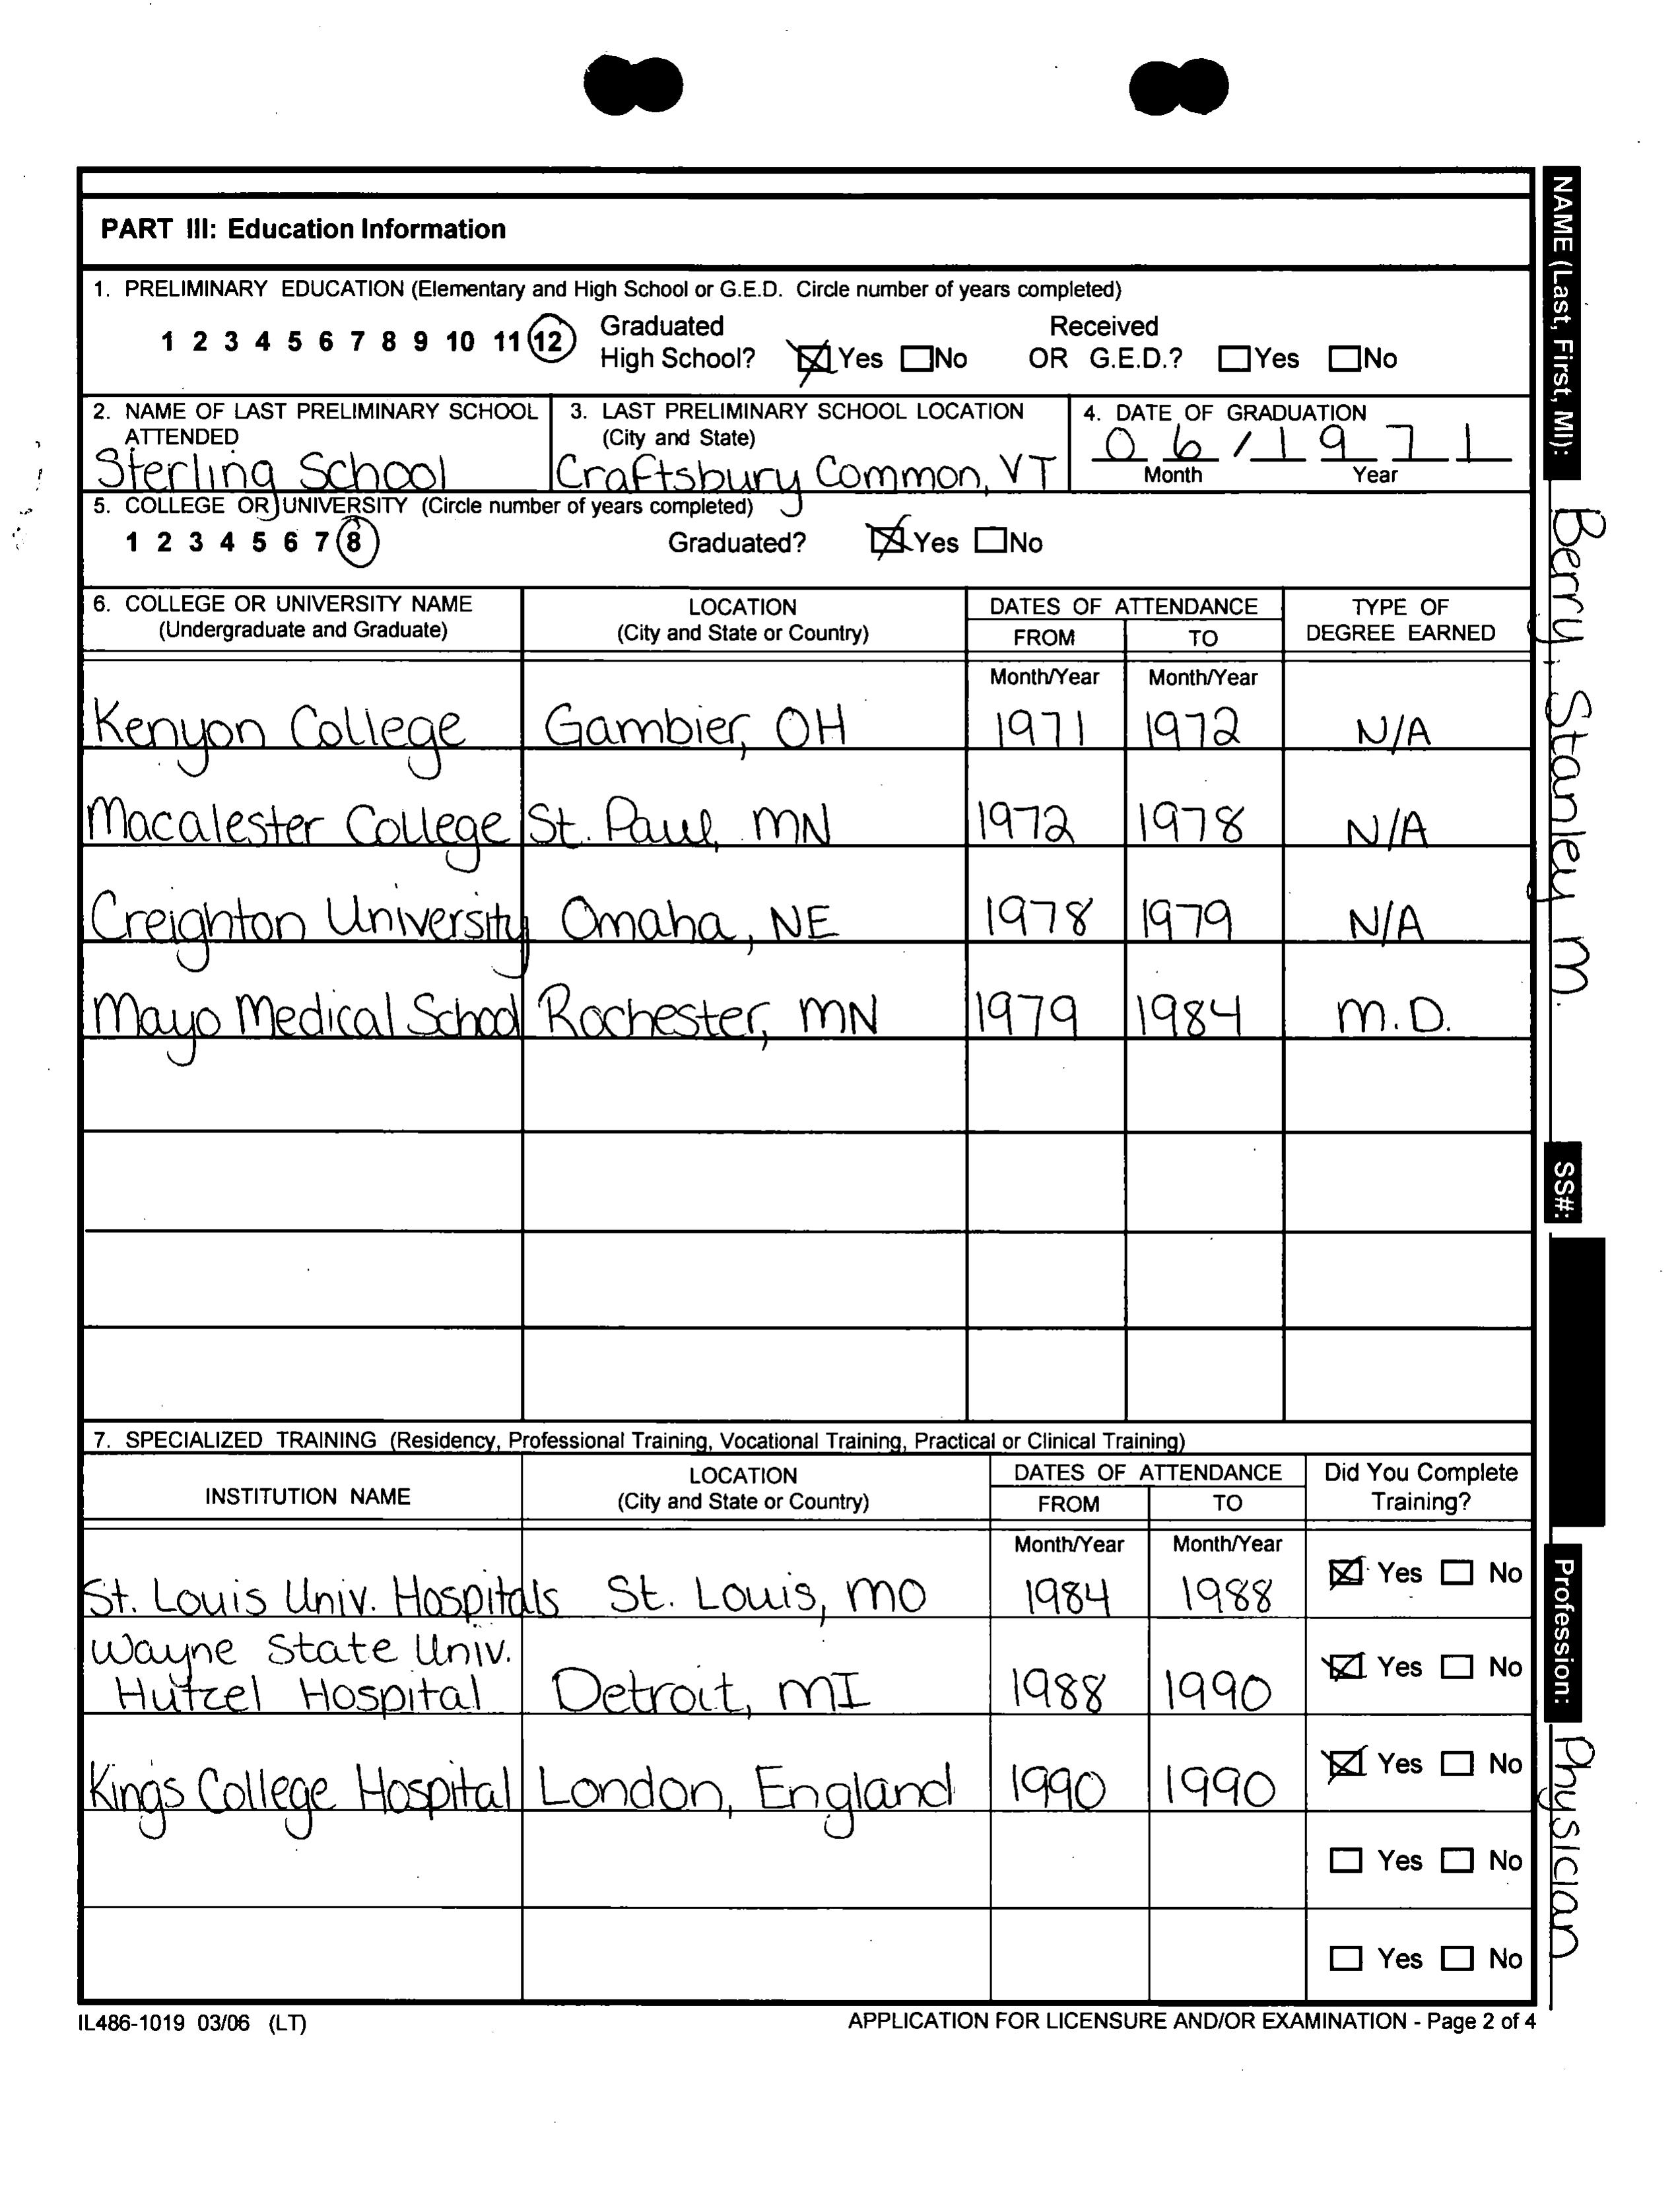 PART III: Education Information
1. PRELIMINARY EDUCATION (Elementary and High School or G.E.D. Circle number of years completed)
1 2 3 4 5 6 7 8 9 10 11 12 Graduated High School? Yes No Received OR G.E.D.? Yes No
2. NAME OF LAST PRELIMINARY SCHOOL ATTENDED
Sterling School
3. LAST PRELIMINARY SCHOOL LOCATION (City and State)
Craftsbury Common, VT
4. DATE OF GRADUATION
06/1971
Month Year
5. COLLEGE OR UNIVERSITY (Circle number of years completed)
1 2 3 4 5 6 7 8 Graduated? Yes No
6. COLLEGE OR UNIVERSITY NAME (Undergraduate and Graduate) LOCATION (City and State or Country) DATES OF ATTENDANCE FROM TO TYPE OF DEGREE EARNED
Month/Year Month/Year
Kenyon College Gambier, OH 1971 1972 N/A
Macalester College St. Paul, MN 1972 1978 N/A
Creighton University Omaha, NE 1978 1979 N/A
Mayo Medical School Rochester, MN 1979 1984 M.D.
7. SPECIALIZED TRAINING (Residency, Professional Training, Vocational Training, Practical or Clinical Training)
INSTITUTION NAME LOCATION (City and State or Country) DATES OF ATTENDANCE FROM TO Did You Complete Training?
Month/Year Month/Year
St. Louis Univ. Hospitals St. Louis, MO 1984 1988 Yes No
Wayne State Univ.
Hutzel Hospital Detroit, MI 1988 1990 Yes No
Kings College Hospital London, England 1990 1990 Yes No
Yes No
Yes No
IL486-1019 03/06 (LT) APPLICATION FOR LICENSURE AND/OR EXAMINATION - Page 2 of 4
NAME (Last, First, MI): Berry, Stanley M.
SS#:
Profession: Physician